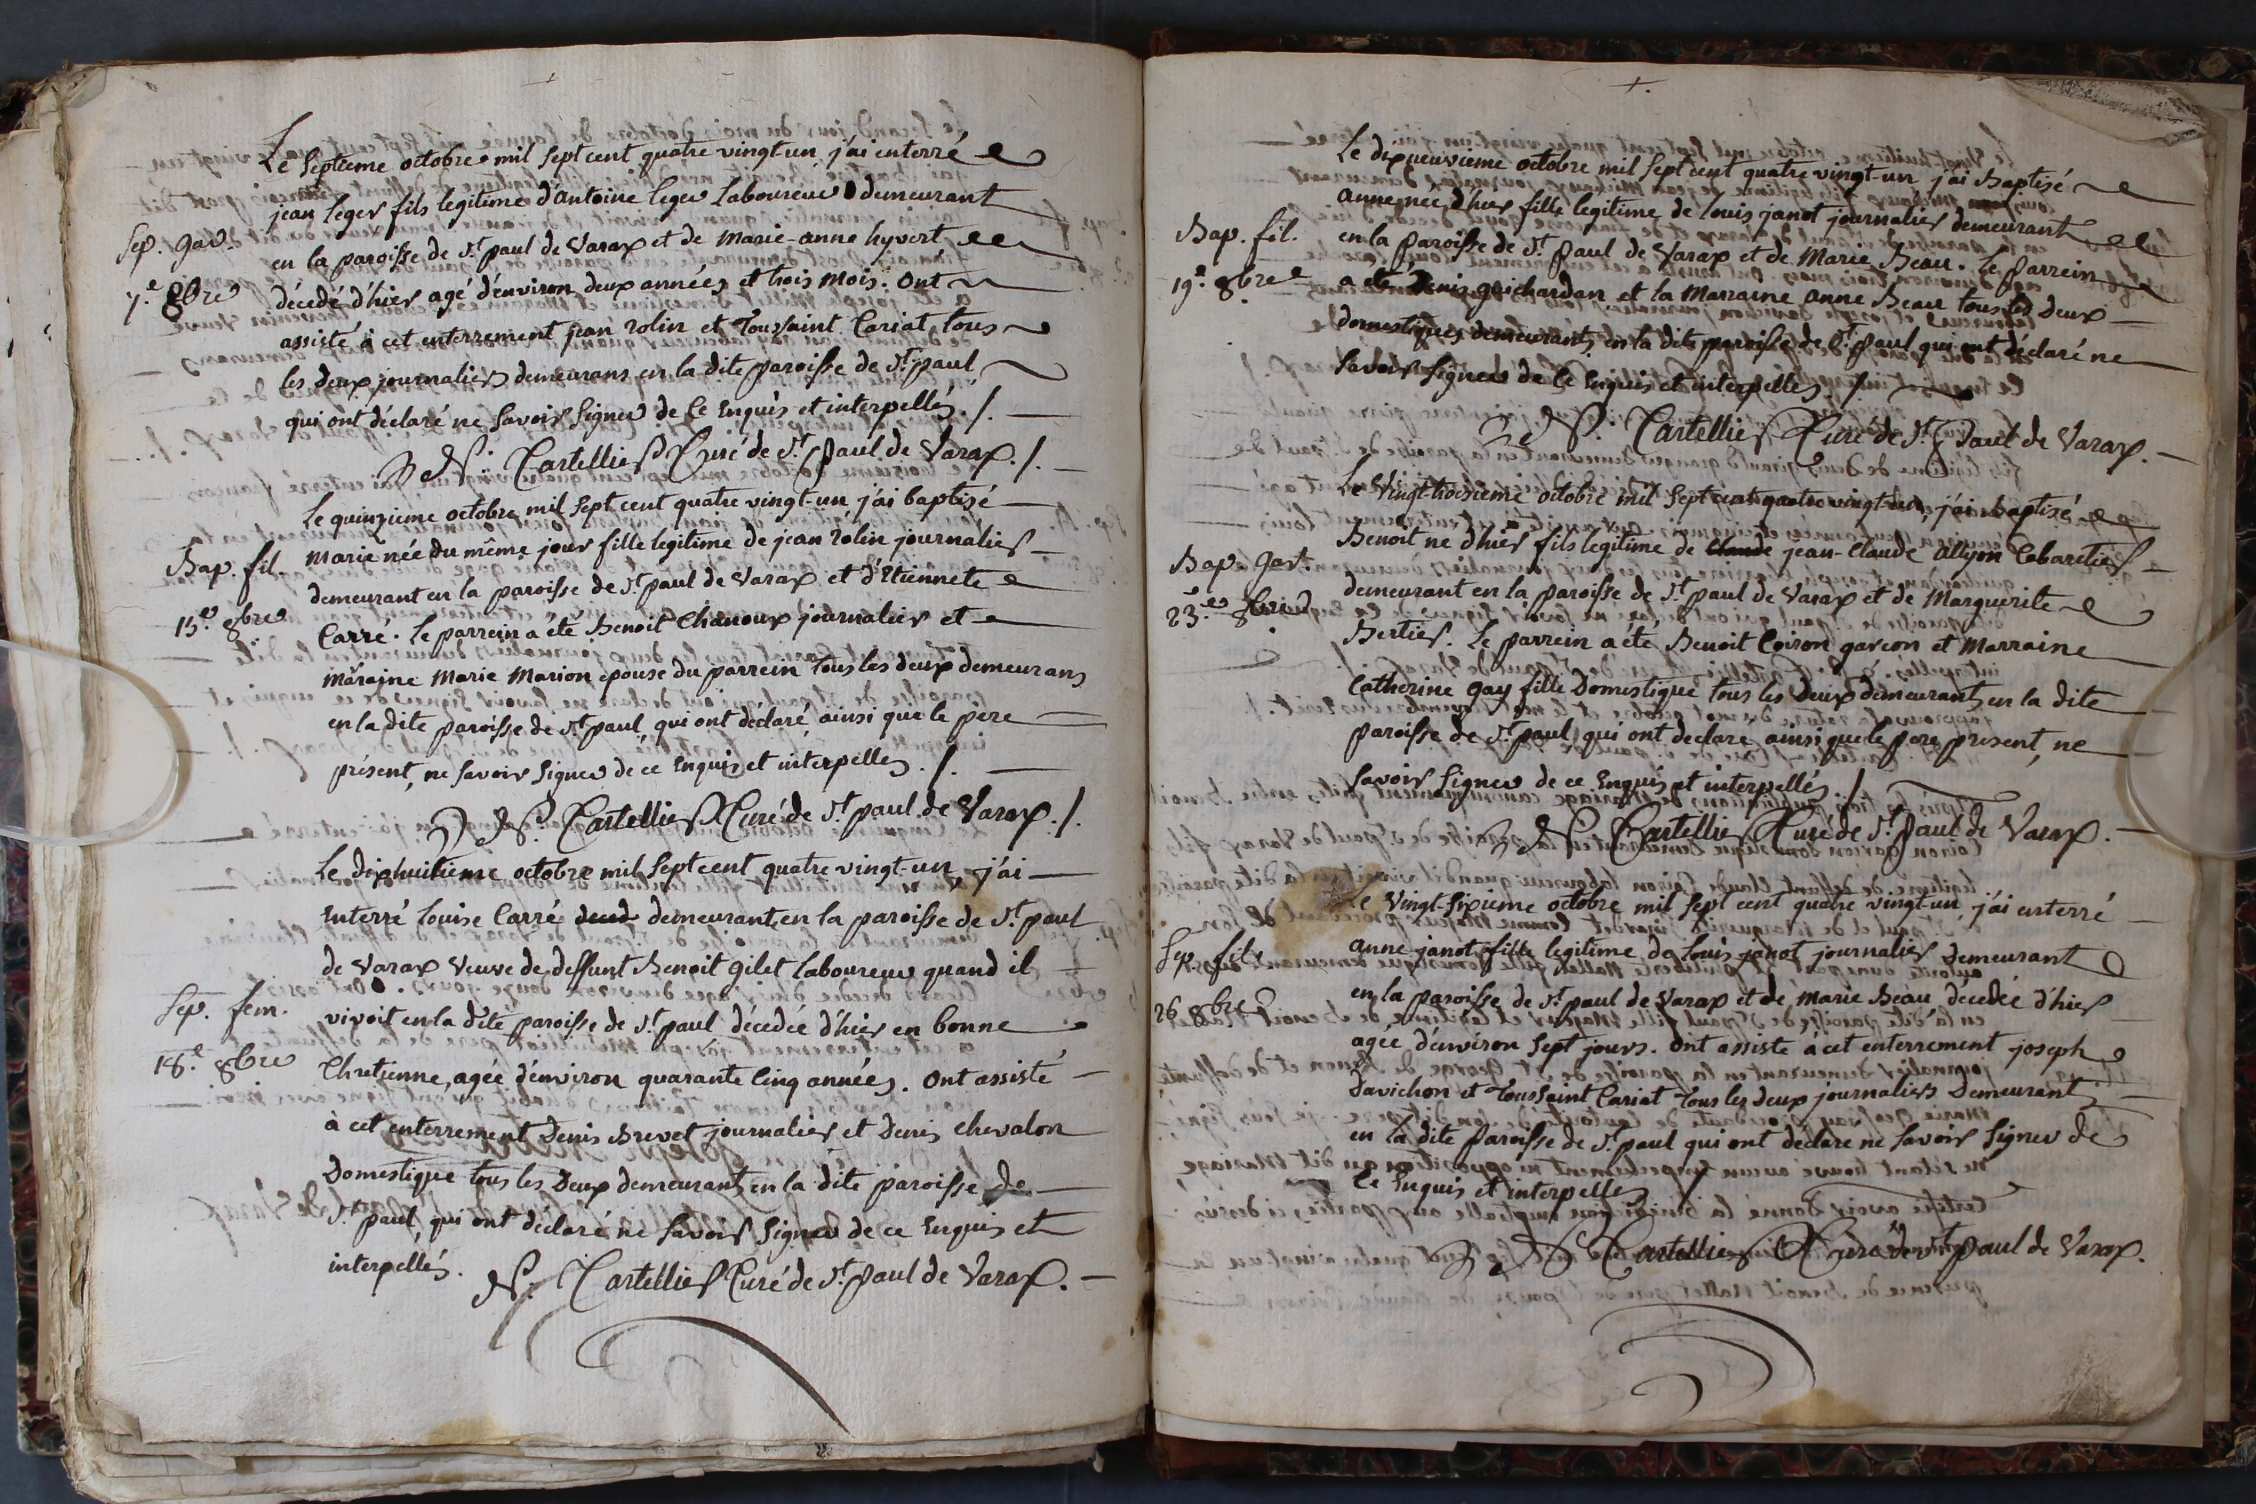 Le septieme octobre mil sept cent quatre vingt-un j'ai enterré
jean leger fils legitime d'antoine leger laboureur demeurant
Sep. gar.
en la paroisse de St. paul de Varax et de Marie-anne hyvert
7.e 8bre
décedé d'hier agé d'environ deux années et trois mois. Ont
assisté à cet enterrement jean rolin et toussaint Cariat tous
les deux journaliers demeurans en la dite paroisse de St. paul
qui ont déclaré ne savoir signer de ce enquis et interpellés ./.
N. Cartellier Curé de St. Paul de Varax ./.
Le quinzieme octobre mil sept cent quatre vingt-un j'ai baptisé
Bap. fil.
Marie née du même jour fille legitime de jean rolin journalier
demeurant en la paroisse de St. paul de Varax et d'Etiennete
15.e 8bre
Carré. le parrein a été Benoit Chanoux journalier et
maraine Marie Marion épouse du parrein tous les deux demeurans
en la dite paroisse de St. paul, qui ont déclaré, ainsi que le pere
présent, ne savoir signer de ce enquis et interpellés ./.
N. Cartellier Curé de St. paul de Varax ./.
Le dixhuitieme octobre mil sept cent quatre vingt-un, j'ai
Enterré louise Carré deced demeurante en la paroisse de St. paul
de Varax veuve de deffunt Benoit gilet laboureur quand il
Sep. fem.
vivoit en la dite paroisse de St. paul décedée d'hier en bonne
18.e 8bre
Chretienne, agée d'environ quarante cinq années. Ont assisté
à cet enterrement Denis Brevet journalier et Denis chevalon
Domestique tous les Deux demeurants en la dite paroisse de
St. paul, qui ont déclaré ne savoir signer de ce enquis et
interpellés.
N. Cartellier Curé de St. paul de Varax.
Le dixneuvieme octobre mil sept cent quatre vingt-un j'ai Baptisé
anne née d'hier fille legitime de louis janot journalier demeurant
Bap. fil.
en la paroisse de St. Paul de Varax et de Marie Beau. Le parrein
19.e 8bre
a été Denis guichardan et la Marraine anne Beau tous les deux
domestiques demeurants en la dite paroisse de St. paul qui ont déclaré ne
savoir signer de ce enquis et interpellés ./.
N. Cartellier Curé de St. Paul de Varax.
Le Vingt-troisieme octobre mil sept cent quatre vingt-un, j'ai baptisé
Benoit né d'hier fils legitime de Claude jean-Claude allyon Cabaretier
Bap. gar.
demeurant en la paroisse de St. paul de Varax et de Marguerite
23.e 8bre
Bertier. Le parrein a été Benoit Coiron garcon et Marraine
Catherine gay fille Domestique tous les deux demeurants en la dite
paroisse de St. paul, qui ont declaré, ainsi que le pere present, ne
savoir signer de ce enquis et interpellés ./.
N. Cartellier Curé de St. Paul de Varax.
Le Vingt-sixieme octobre mil sept cent quatre vingt-un j'ai enterré
Sep. fil.
anne janot fille legitime de louis janot journalier demeurant
26 8bre
en la paroisse de St. paul de Varax et de Marie Beau décedée d'hier
agée d'environ sept jours. Ont assisté à cet enterrement joseph
Davichon et Toussaint Cariat tous les deux journaliers Demeurants
en la dite paroisse de St. paul qui ont declaré ne savoir signer de
ce enquis et interpellés ./.
N. Cartellier Curé de St. paul de Varax.